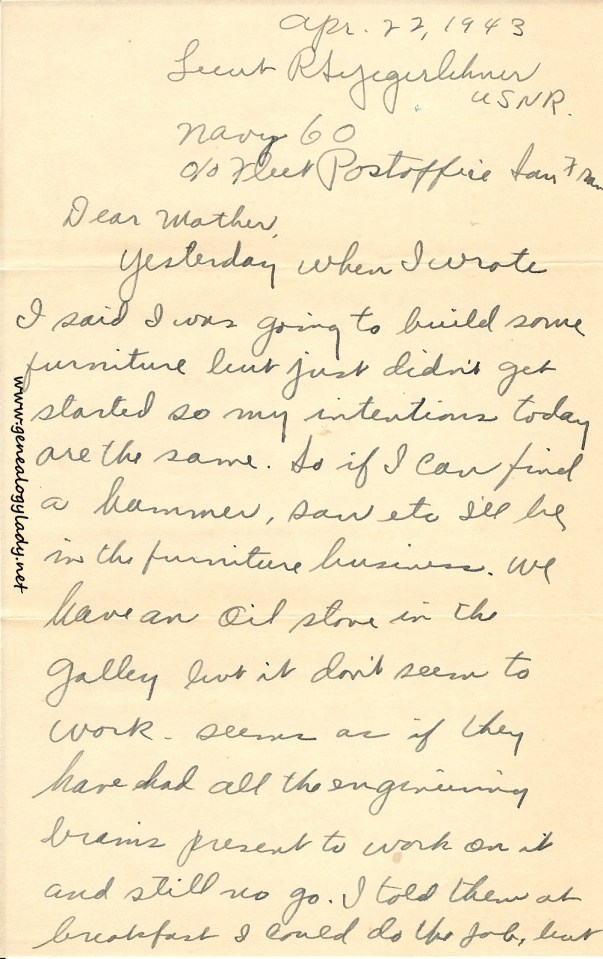 Apr. 22, 1943
Lieut R S Yegerlehner
USNR.
Navy 60
c/o Fleet Postoffice San Fran
Dear Mother,
Yesterday when I wrote
I said I was going to build some
furniture but just didn't get
started so my intentions today
are the same. So if I can find
a hammer, saw etc I'll be
in the furniture business. We
have an oil stove in the
galley but it don't seem to
work - seems as if they
have had all the engineering
brains present to work on it
and still no go. I told them at
breakfast I could do the job, but
www.genealogylady.net